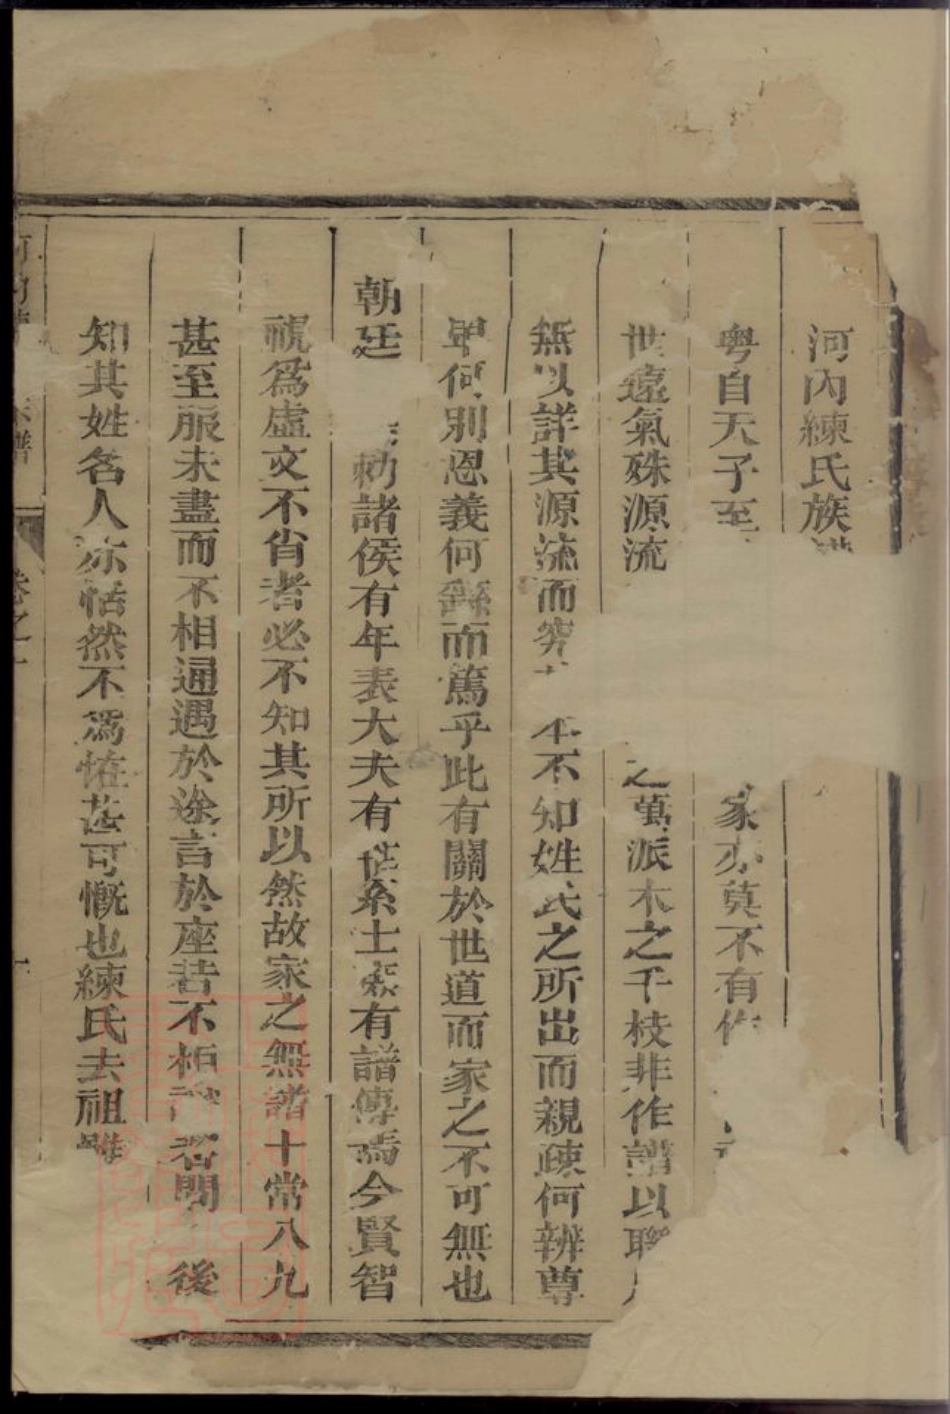 河內練氏族
粤自天子至家亦莫不有作
世遠氣殊源流之萬派木之千枝非作譜以聯
無以詳其源流而究本不知姓氏之所出而親疎何辨尊
卑何別恩義何繇而篤乎此有關於世道而家之不可無也
朝廷勑諸侯有年表大夫有世系士庶有譜傳焉今賢智
視爲虛文不省者必不知其所以然故家之無譜十常八九
甚至服未盡而不相通遇於途言於座若不相者問後
知其姓名人亦恬然不爲怪甚可慨也練氏去祖雖
卷之一